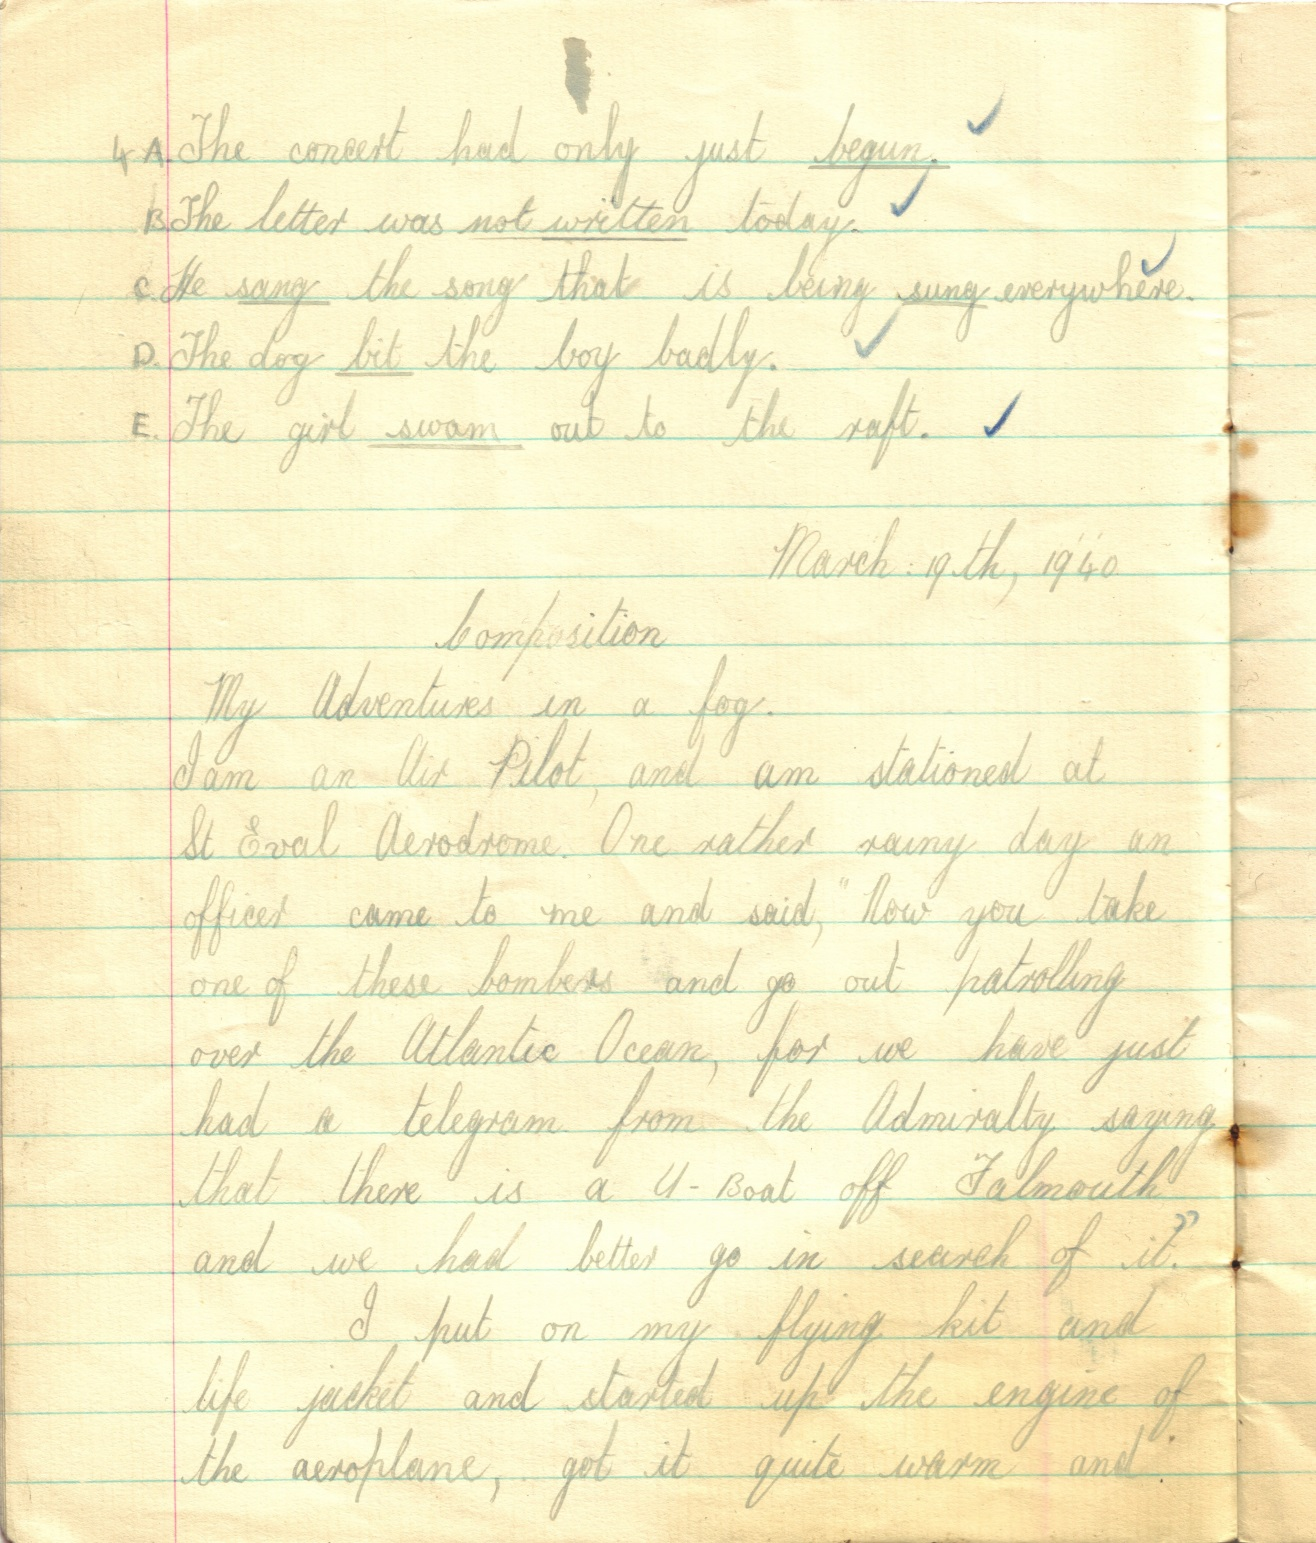 4 A. The concert had only just begun.
B. The letter was not written today.
C. He sang the song that is being sung everywhere.
D. The dog bit the boy badly.
E. The girl swam out to the raft.
March : 19th, 1940
Composition
My Adventures in a fog.
I am an Air Pilot, and am stationed at
St Eval Aerodrome. One rather rainy day an
officer came to me and said, "Now you take
one of these bombers and go out patrolling
over the Atlantic Ocean, for we have just
had a telegram from the Admiralty saying
that there is a U-Boat off Falmouth
and we had better go in search of it."
I put on my flying kit and
life jacket and started up the engine of
the aeroplane, got it quite warm and